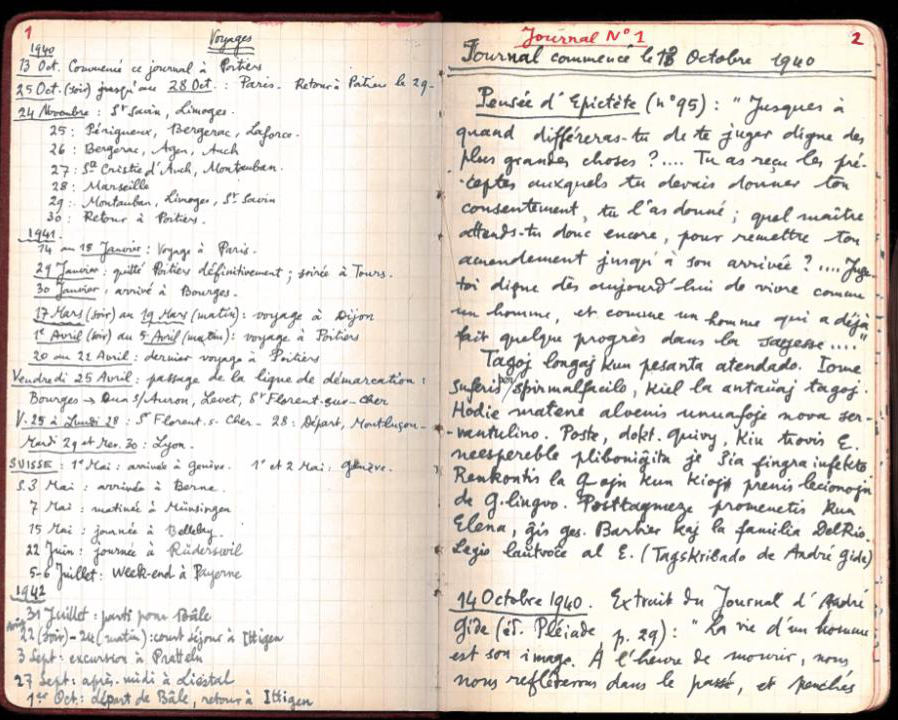 1
Voyages
1940
13 Oct. Commencé ce journal à Poitiers
25 Oct. (soir) jusqu'au 28 Oct. : Paris. Retour à Poitiers le 29.
24 Novembre : St Savin, Limoges.
25 : Périgueux, Bergerac, Laforce.
26 : Bergerac, Agen, Auch
27 : Ste Cristie d'Auch, Montauban.
28 : Marseille
29 : Montauban, Limoges, St Savin
30 : Retour à Poitiers.
1941
14 au 18 Janvier : Voyage à Paris.
29 Janvier : quitté Poitiers définitivement ; soirée à Tours.
30 Janvier, arrivé à Bourges.
17 Mars (soir) au 19 Mars (matin) : voyage à Dijon
1er Avril (soir) au 5 Avril (matin) : voyage à Poitiers
20 au 22 Avril : dernier voyage à Poitiers
Vendredi 25 Avril : passage de la ligne de démarcation :
Bourges → Dun s/Auron, Levet, St Florent-sur-Cher
V. 25 à Lundi 28 : St Florent-s-Cher - 28 : Départ, Montluçon -
Mardi 29 et Mer. 30 : Lyon.
SUISSE : 1er Mai : arrivée à Genève. 1er et 2 Mai : Genève.
S. 3 Mai : arrivée à Berne.
7 Mai : matinée à Münsingen
15 Mai : journée à
22 Juin : journée à Rüderswil
5-6 Juillet : Week-end à Payerne
1942
31 Juillet : parti pour Bâle
22 (soir) - 24 (matin) : court séjour à Ittigen
3 Sept : excursion à Pratteln
27 Sept : après-midi à Liestal
1er Oct : départ de Bâle, retour à Ittigen
Journal N° 1
2
Journal commencé le 13 Octobre 1940
Pensée d'Epictète (n° 95) : "Jusques à
quand différeras-tu de te juger digne des
plus grandes choses ?.... Tu as reçu les pré-
ceptes auxquels tu devais donner ton
consentement, tu l'as donné ; quel maître
attends-tu donc encore, pour remettre ton
amendement jusqu'à son arrivée ?.... Juge-
toi digne dès aujourd'hui de vivre comme
un homme, et comme un homme qui a déjà
fait quelque progrès dans la sagesse...."
Tagoj longaj kun pesanta atendado. Iome
suferis por spiri malfacilo, kiel la antaŭaj tagoj.
Hodie matene alvenis unuafoje nova ser-
vantulino. Poste, dokt. Quivy, kiu trovis E.
neespereble plibonigita je ŝia fingra infekto
Renkontis la kun kioj prenis lecionojn
de G. lingvo. Posttagmeze promenetis kun
Elena, ĝis ges. Barbier kaj la familia DelRio.
Legis laŭtvoĉe al E. (Tagskribado de André Gide)
14 Octobre 1940. Extrait du Journal d'André
Gide (éd. Pléiade p. 29) : "La vie d'un homme
est son image. À l'heure de mourir, nous
nous refléterons dans le passé, et penchés